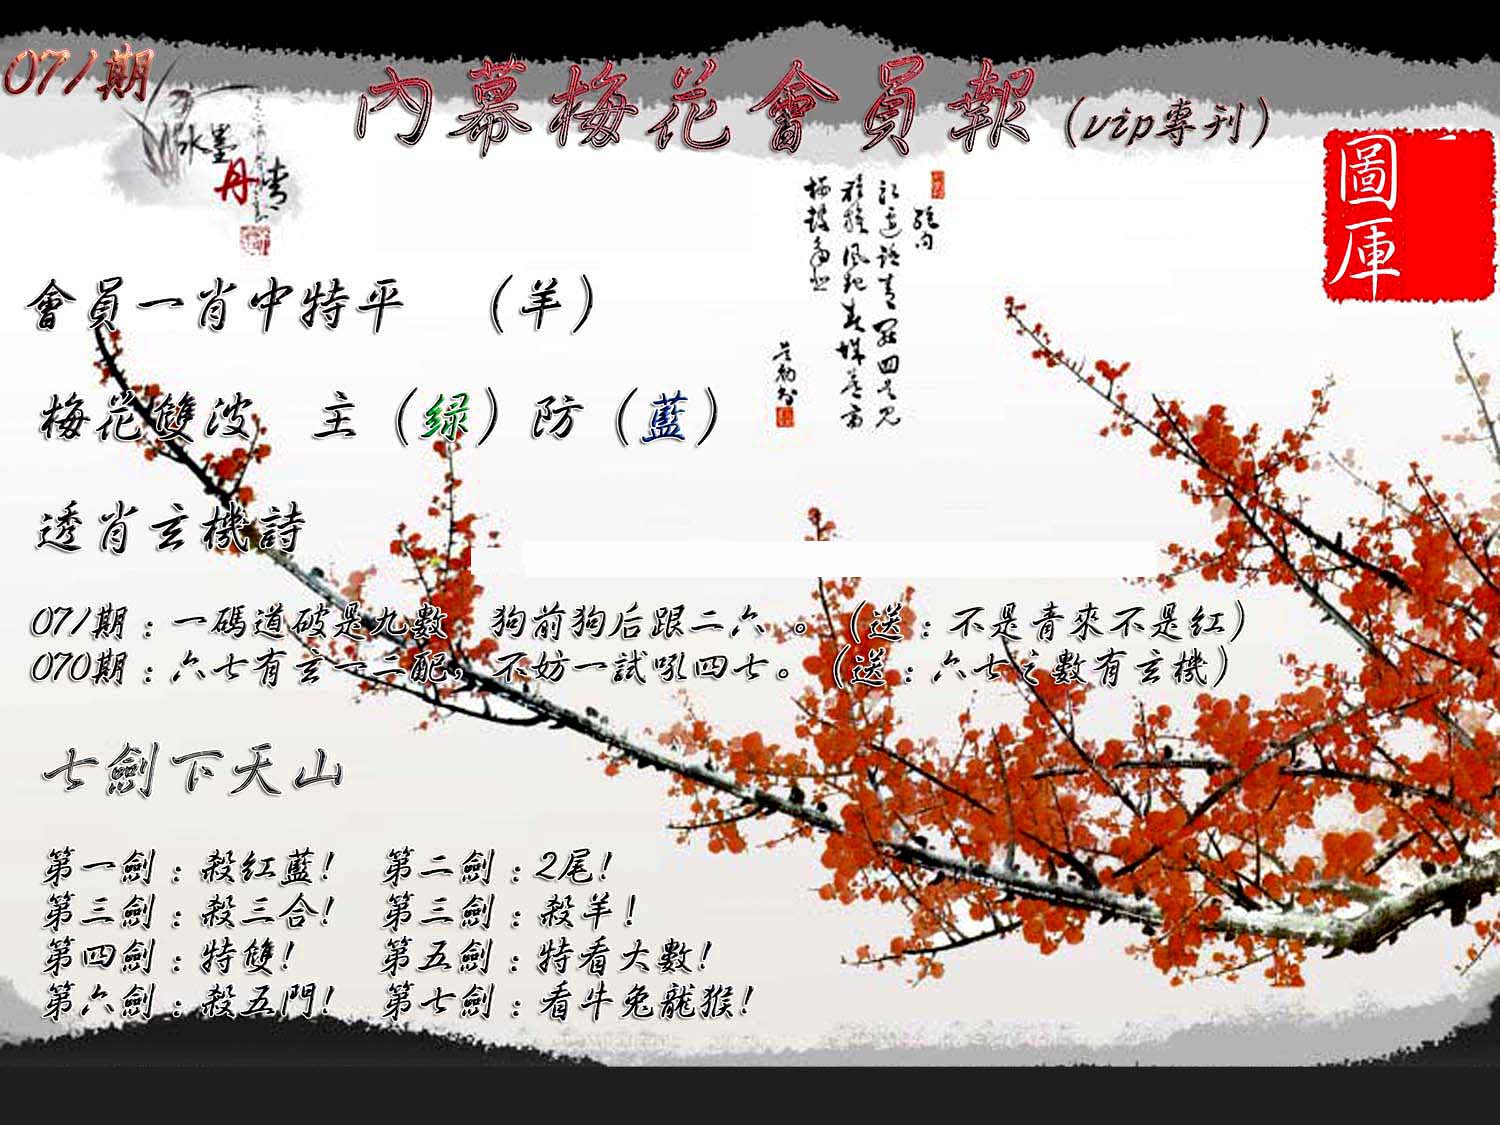 071期
內幕梅花會員報(vip專刊)
水墨
丹青
圖庫
會員一肖中特平 （羊）
梅花雙波 主（绿）防（藍）
透肖玄機詩
071期：一碼道破是九數 狗前狗后跟二六 。（送：不是青來不是红）
070期：六七有玄一二配，不妨一試吼四七。（送：六七之數有玄機）
七劍下天山
第一劍：殺红藍！ 第二劍：2尾！
第三劍：殺三合！ 第三劍：殺羊！
第四劍：特雙！ 第五劍：特看大數！
第六劍：殺五門！ 第七劍：看牛兔龍猴！